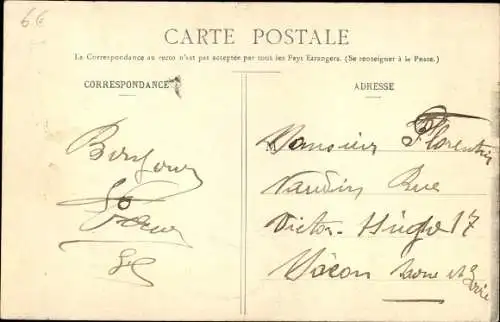 6 €
CARTE POSTALE
La Correspondance au recto n'est pas acceptée par tous les Pays Etrangers. (Se renseigner à la Poste.)
CORRESPONDANCE
ADRESSE
Bonjour
Monsieur Florentin
Vaudin Rue
Victor-Hugo 17
Mâcon Saone et Loire